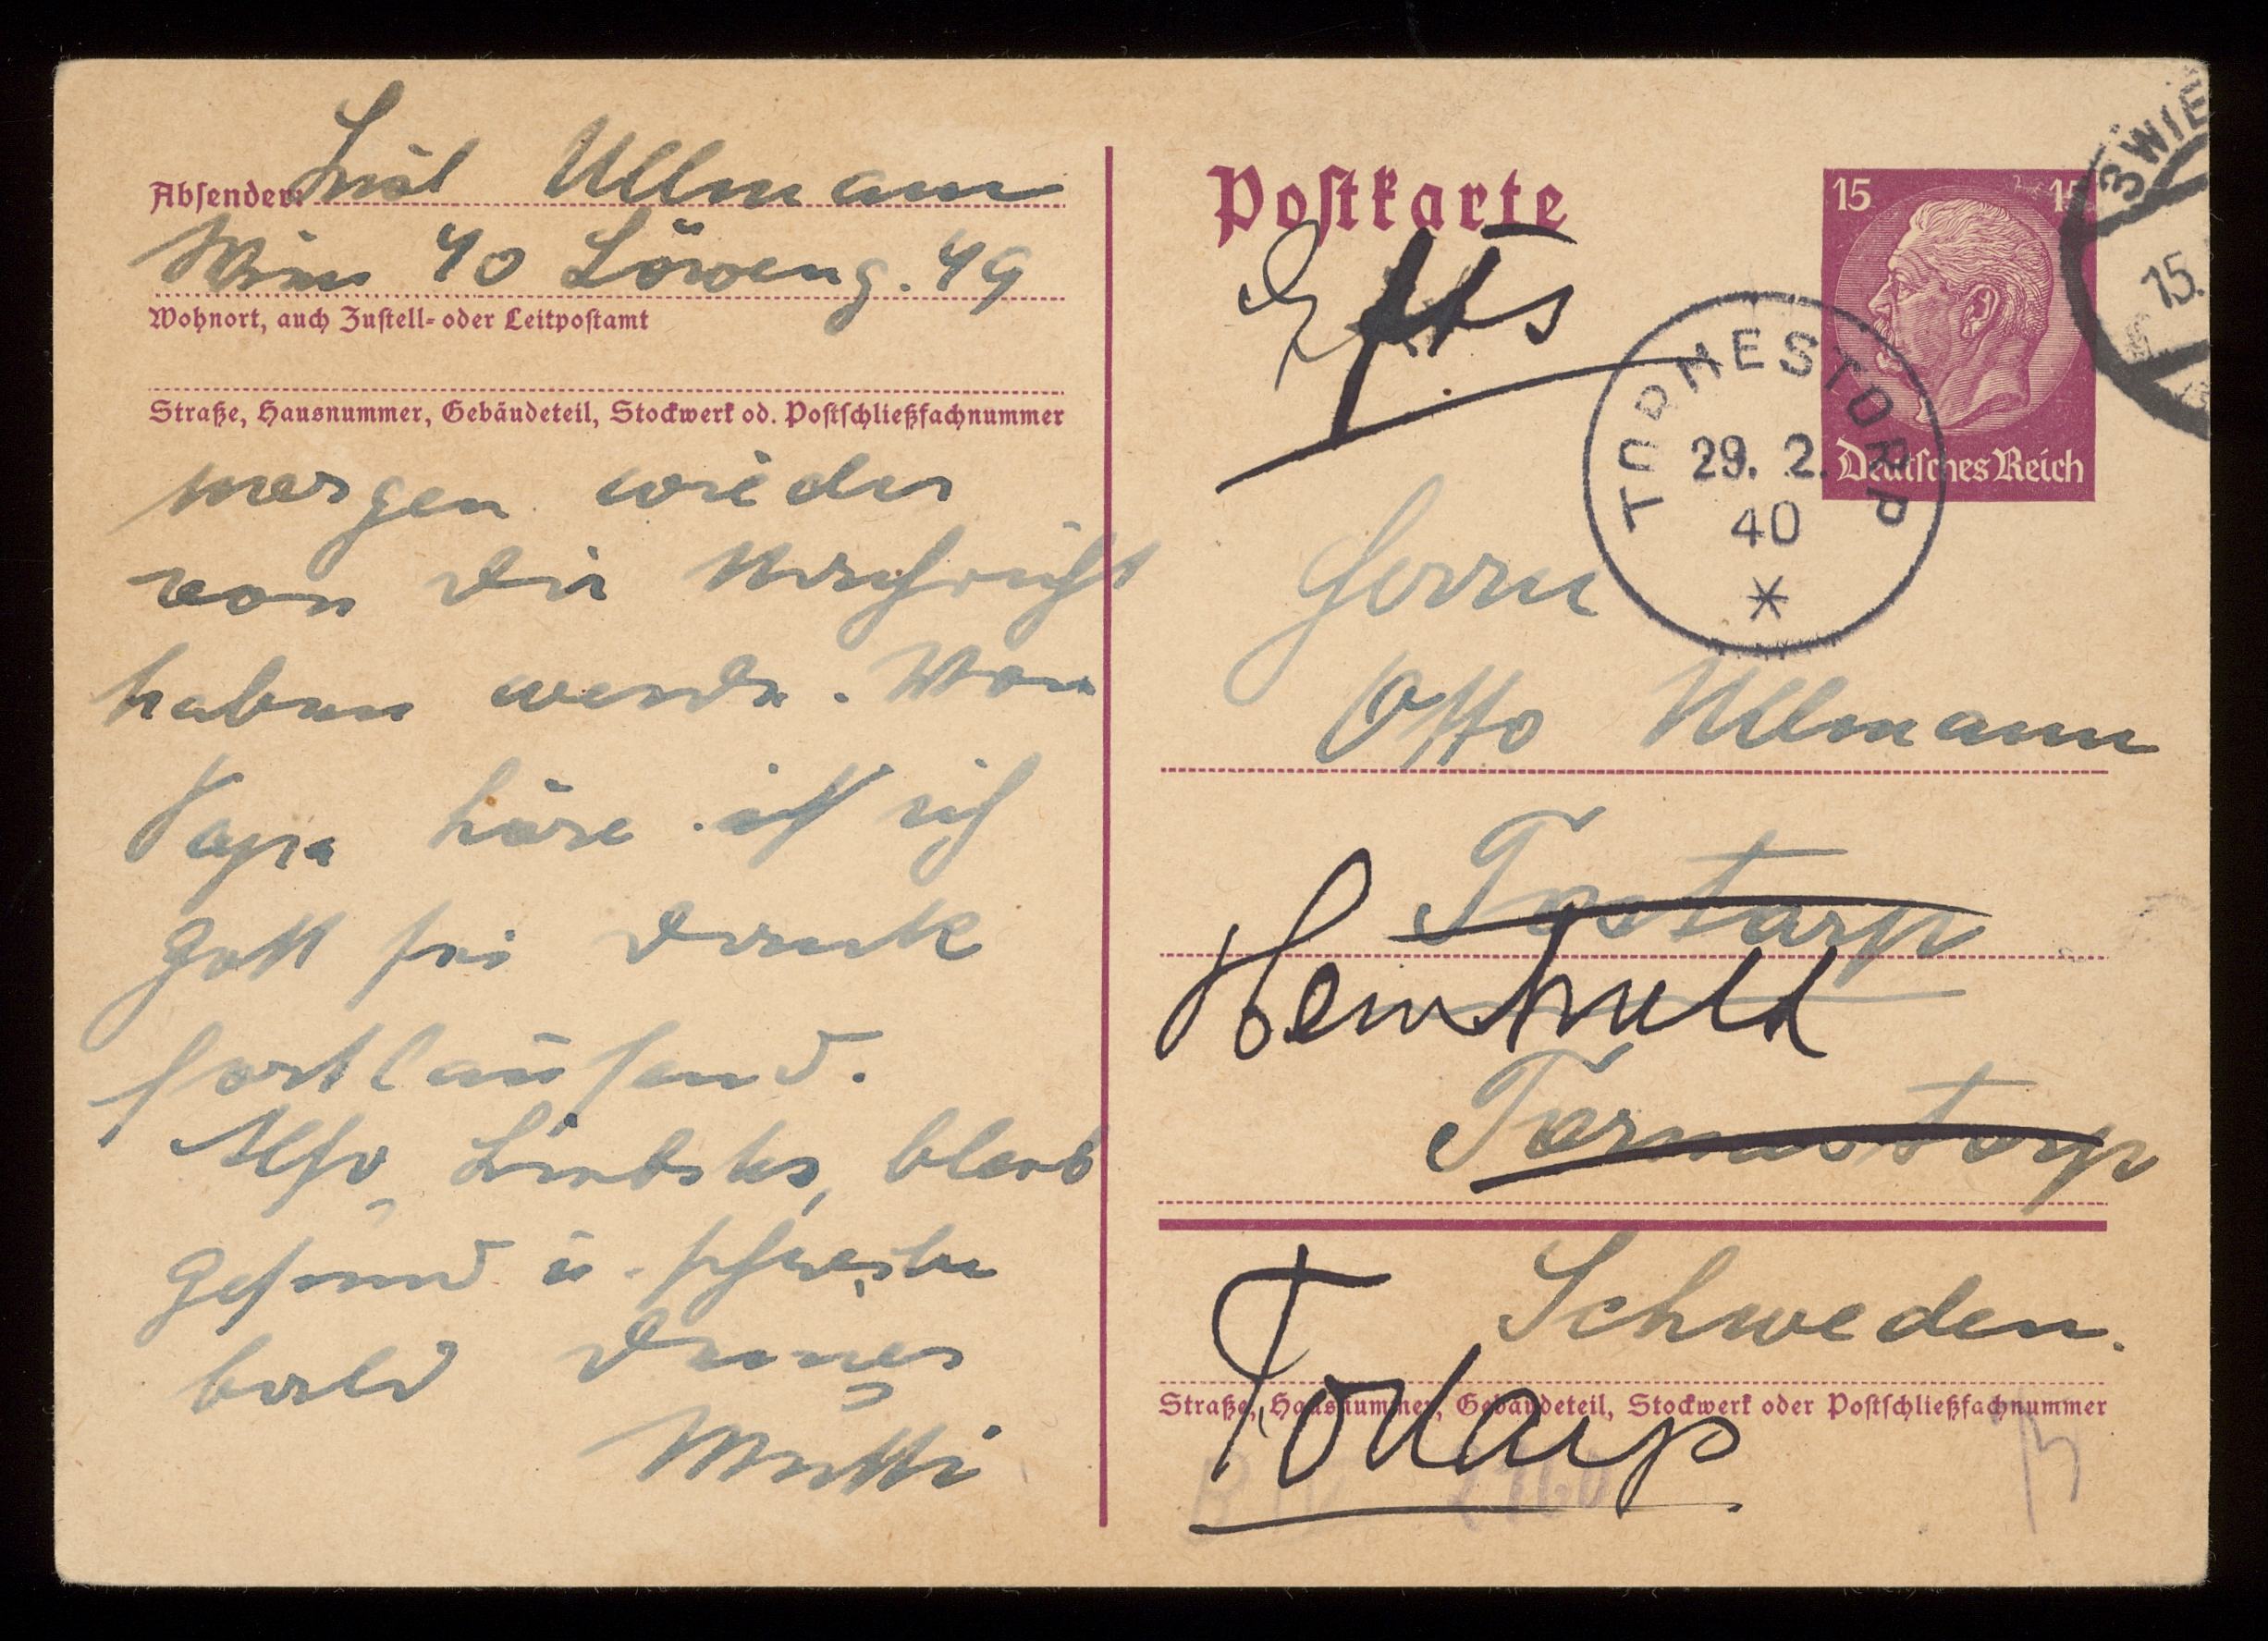 Absender:
Ullmann
Wien 40 Löweng. 49
Wohnort, auch Zustell- oder Leitpostamt
Straße, Hausnummer, Gebäudeteil, Stockwerk od. Postschließfachnummer
morgen wieder
von Dir Nachricht
haben werde. Von
Papa höre ich
Gott sei Dank
fortlaufend.
Also, Liebstes, bleib
gesund u. schreibe
bald Deiner
Mutti
Postkarte
15 15
Deutsches Reich
3 WIE
15.
Efts
TORMESTORP
29. 2.
40
Herrn
Otto Ullmann
Tostarp
Hemhult
Tormestorp
Schweden.
Straße, Hausnummer, Gebäudeteil, Stockwerk oder Postschließfachnummer